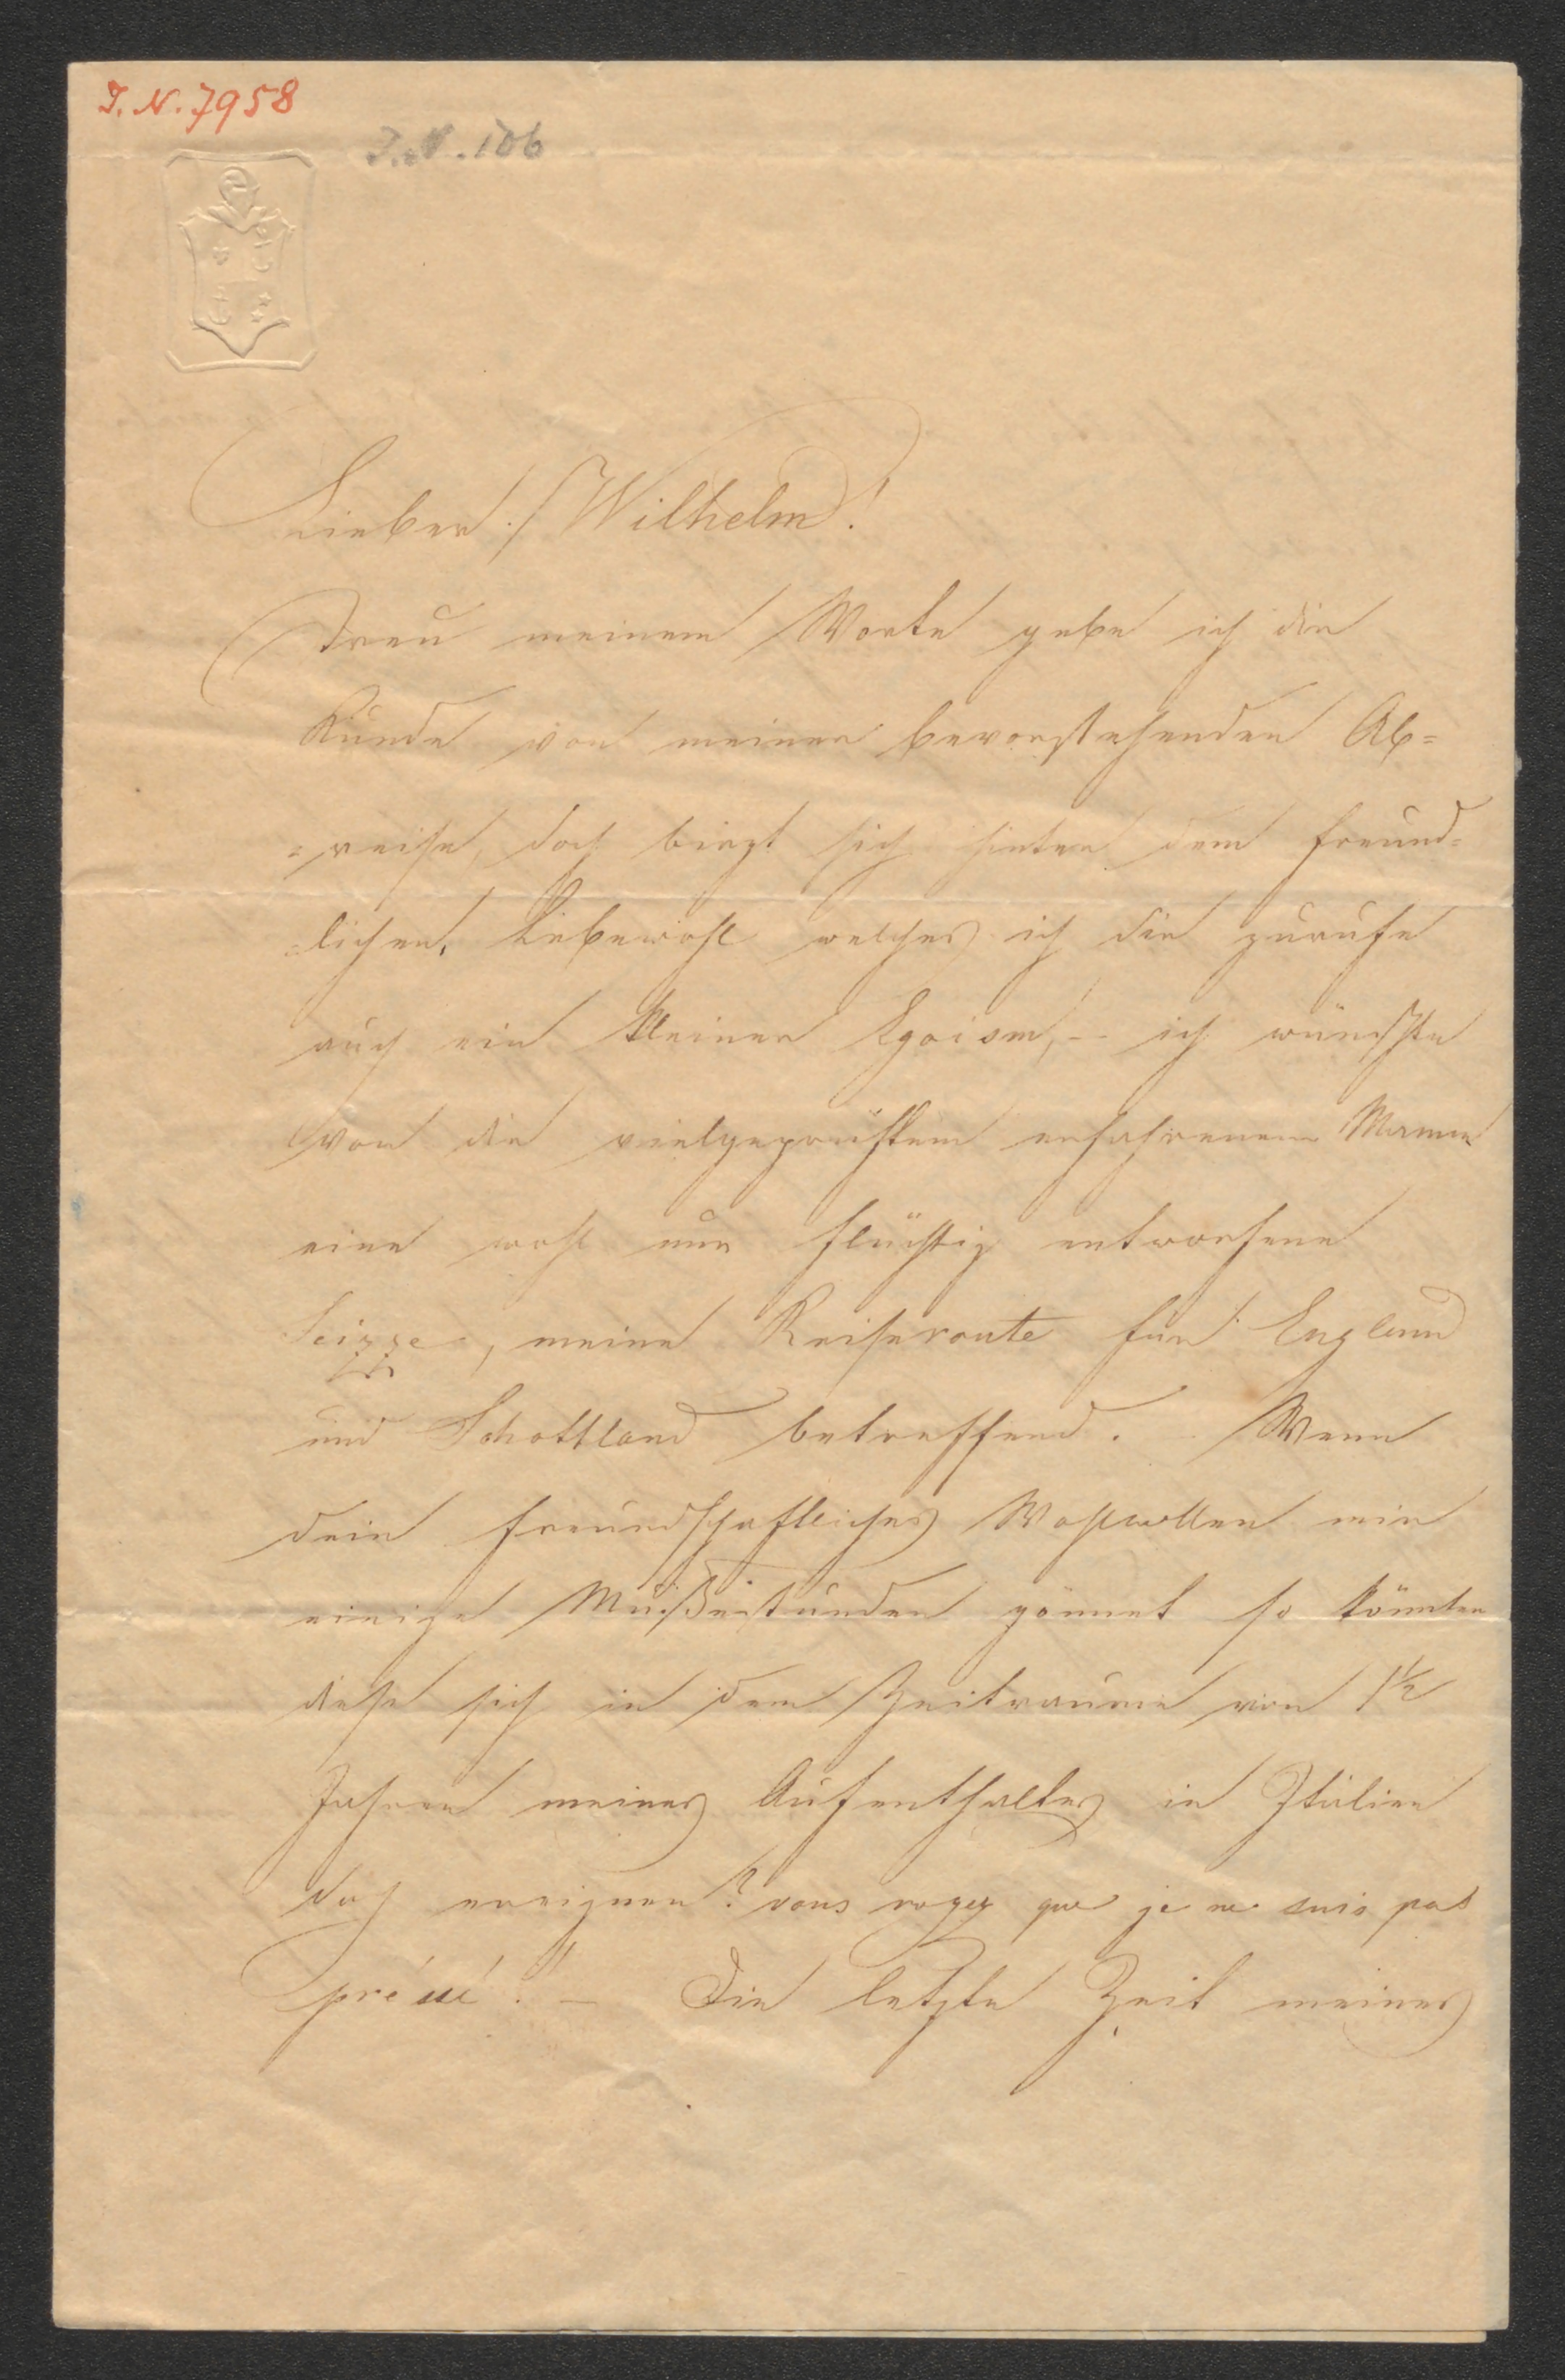 I. N. 7958
I. N. 106
Lieber Wilhelm!
Treu meinem Worte gebe ich dir
Kunde von meiner bevorstehenden Ab=
=reise, doch birgt sich hinter dem freund=
=lichen, Lebewohl welches ich dir zurufe
auch ein kleiner Egoism, – ich wünschte
von dir vielgeprüftem erfahrenem Manne
eine wohl nur flüchtig entworfene
Scizze, meine Reiseroute für England
und Schottland betreffend. – Wenn
dein freundschaftliches Wohlwollen mir
einige Mußestunden gönnet so könnten
diese sich in dem Zeitraume von 1½
Jahren meines Aufenthaltes in Italien
doch ereignen? vous voyez que je ne suis pas
préssé! – Die letzte Zeit meines